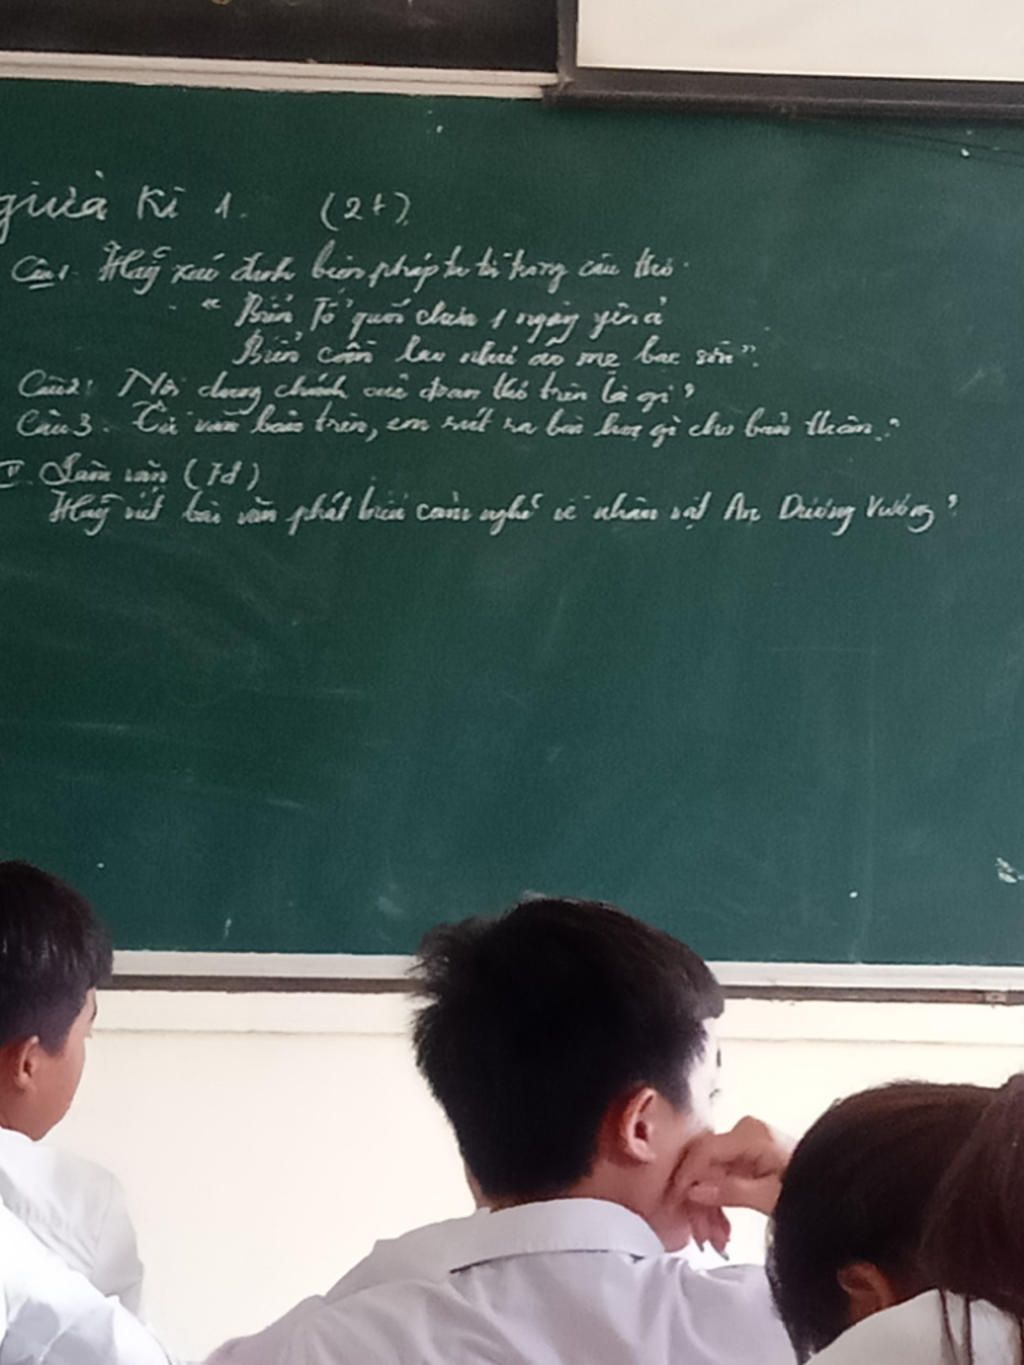 giữa kì 1. (2t)
Câu1. Hãy xác định biện pháp tu từ trong câu thơ.
"Biển Tổ quốc chưa 1 ngày yên ả
Biển cần lao như áo mẹ bạc sờn".
Câu2: Nội dung chính của đoạn thơ trên là gì?
Câu3. Từ văn bản trên, em rút ra bài học gì cho bản thân.?
II. Làm văn (7đ)
Hãy viết bài văn phát biểu cảm nghĩ về nhân vật An Dương Vương?